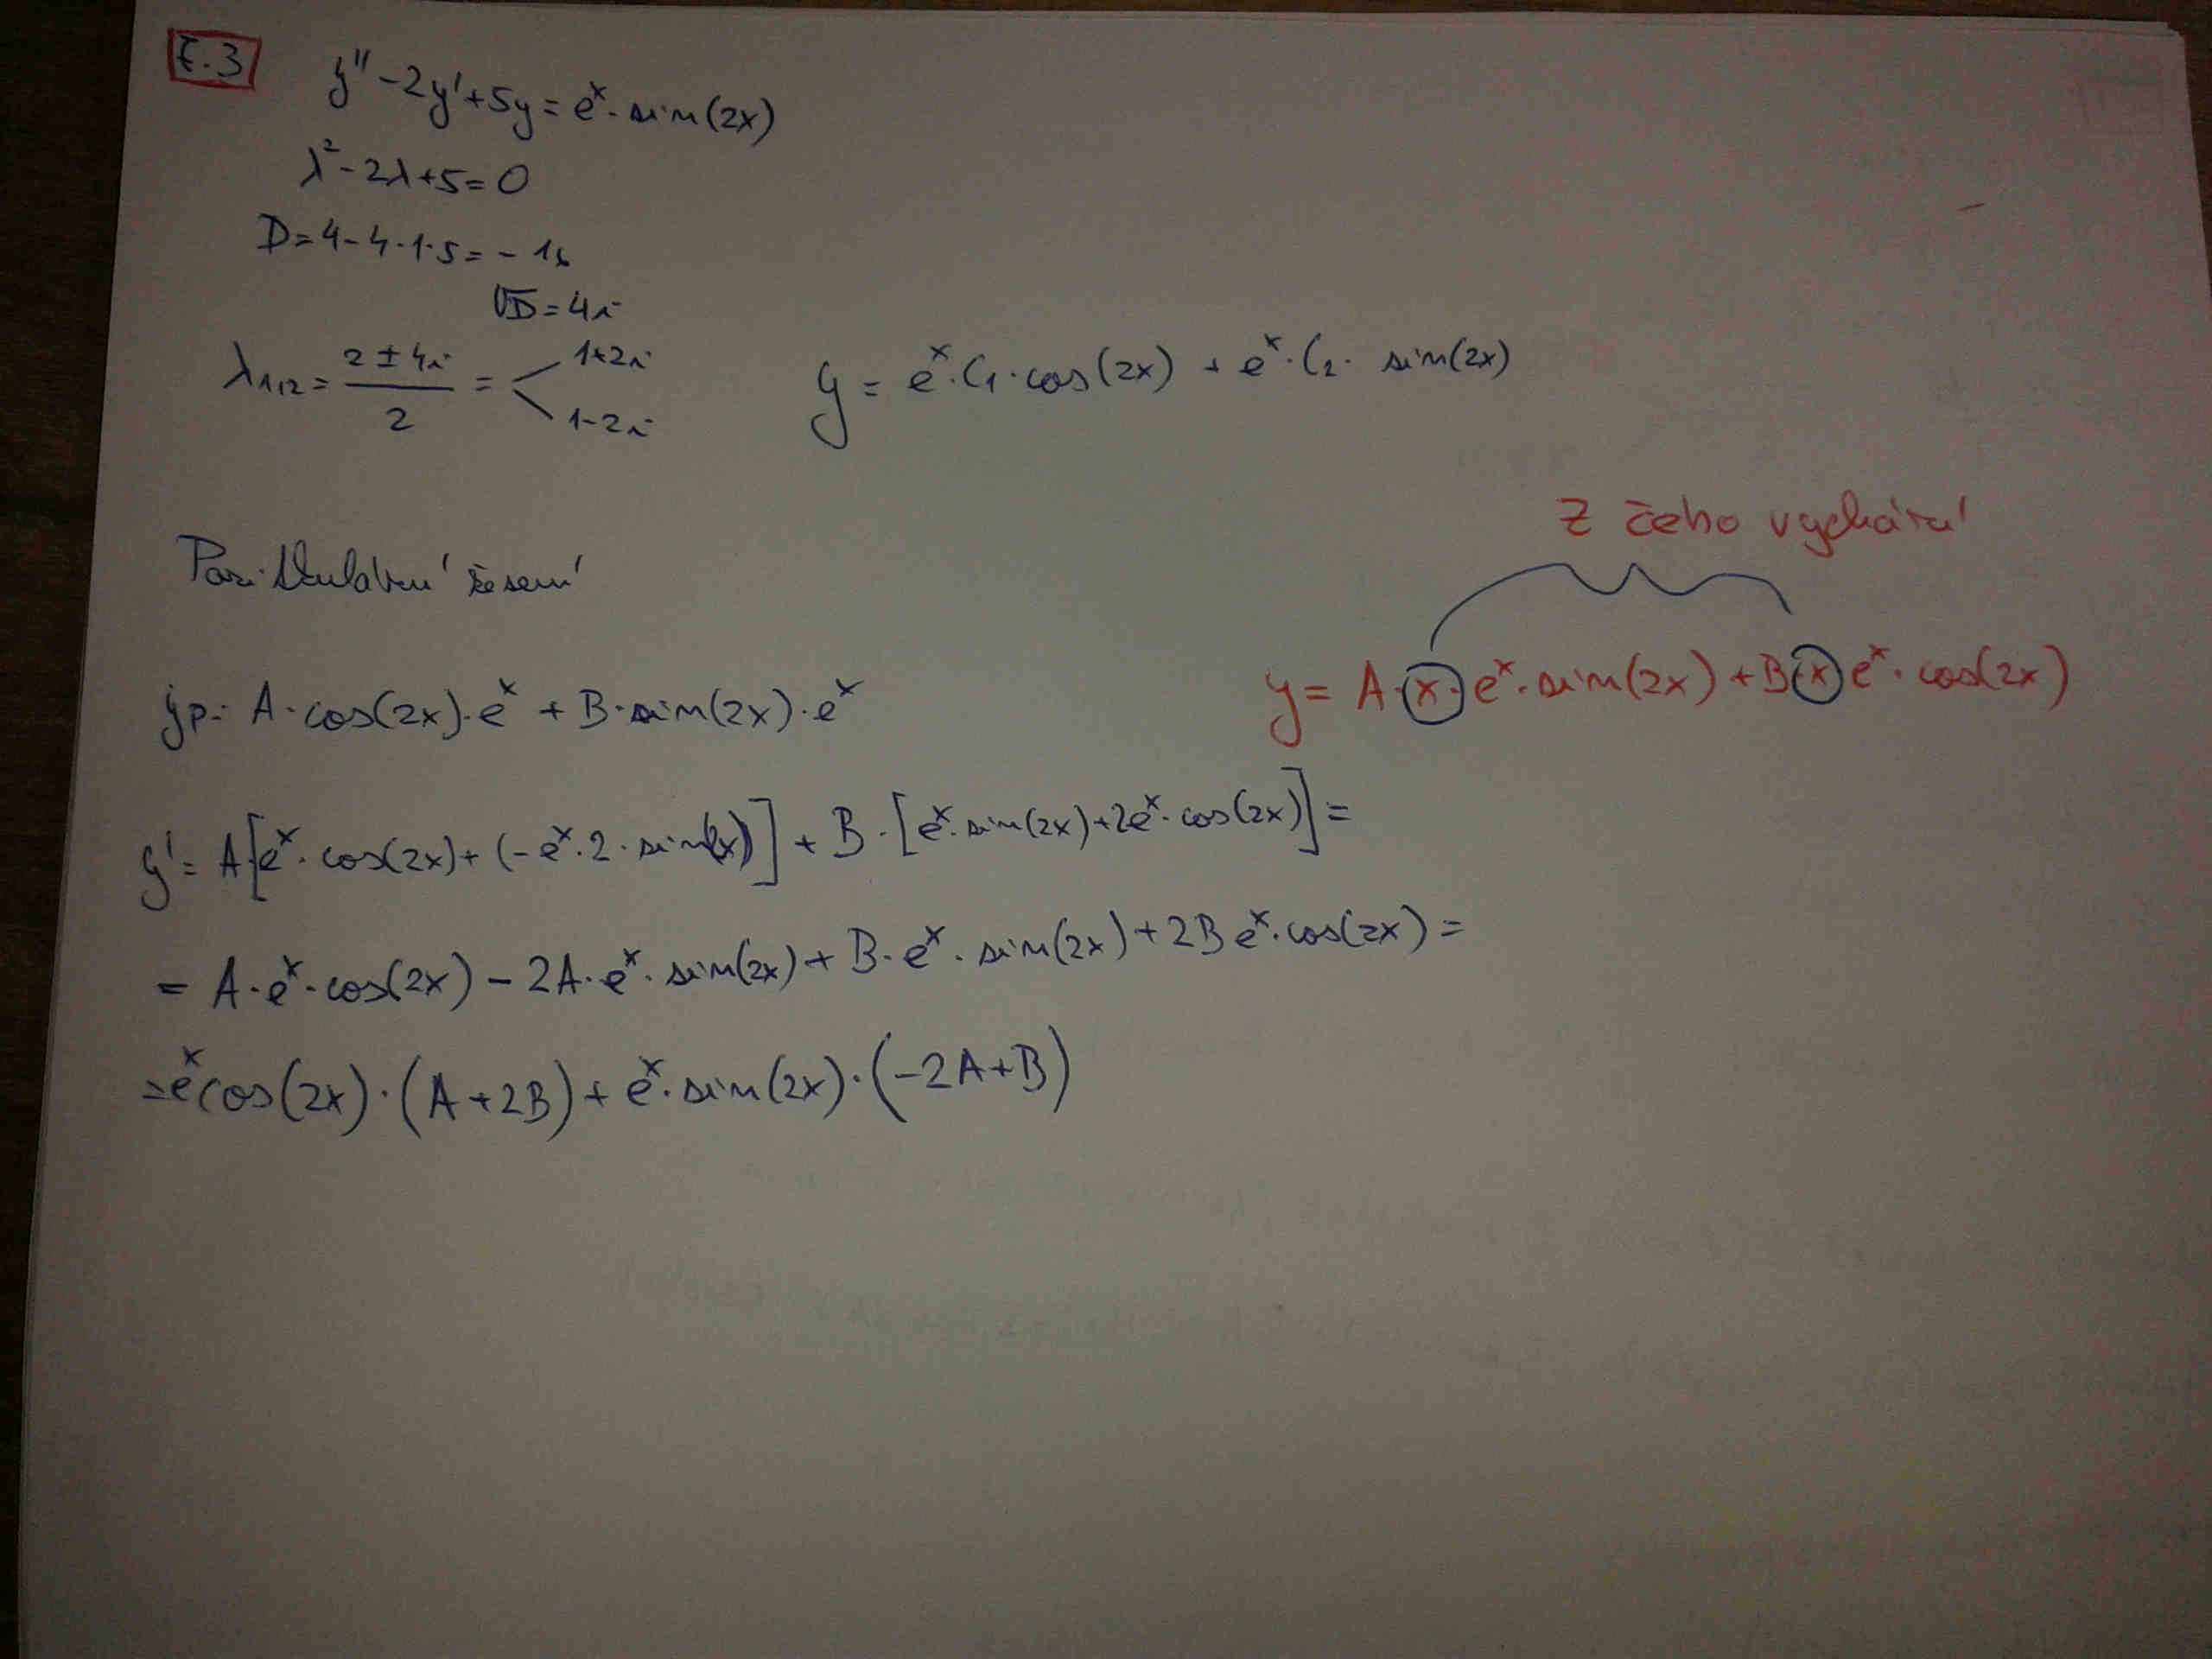 ř.3
y'' - 2y' + 5y = eˣ · sin(2x)
λ² - 2λ + 5 = 0
D = 4 - 4·1·5 = - 16
√D = 4i
λ₁,₂ = (2 ± 4i)/2 = < 1+2i
1-2i
y = eˣ·C₁·cos(2x) + eˣ·C₂· sin(2x)
z čeho vychází
Partikulární řešení
yp = A·cos(2x)·eˣ + B·sin(2x)·eˣ
y = A·x·eˣ·sin(2x) + B·x eˣ·cos(2x)
y' = A[eˣ·cos(2x) + (-eˣ·2·sin(2x))] + B·[eˣ·sin(2x) + 2eˣ·cos(2x)] =
= A·eˣ·cos(2x) - 2A·eˣ·sin(2x) + B·eˣ·sin(2x) + 2B eˣ·cos(2x) =
= eˣ cos(2x)·(A+2B) + eˣ·sin(2x)·(-2A+B)